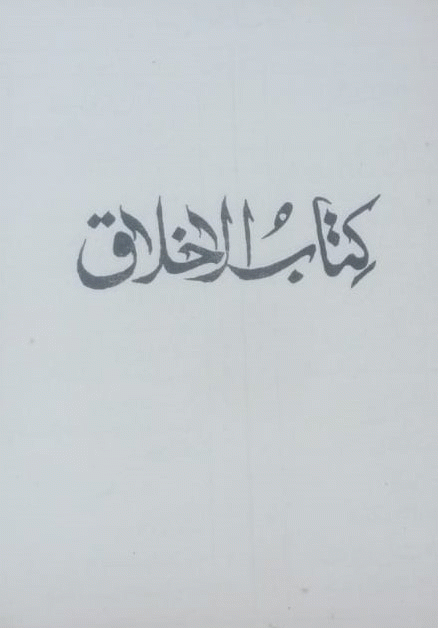 كِتابُ الاخلاق